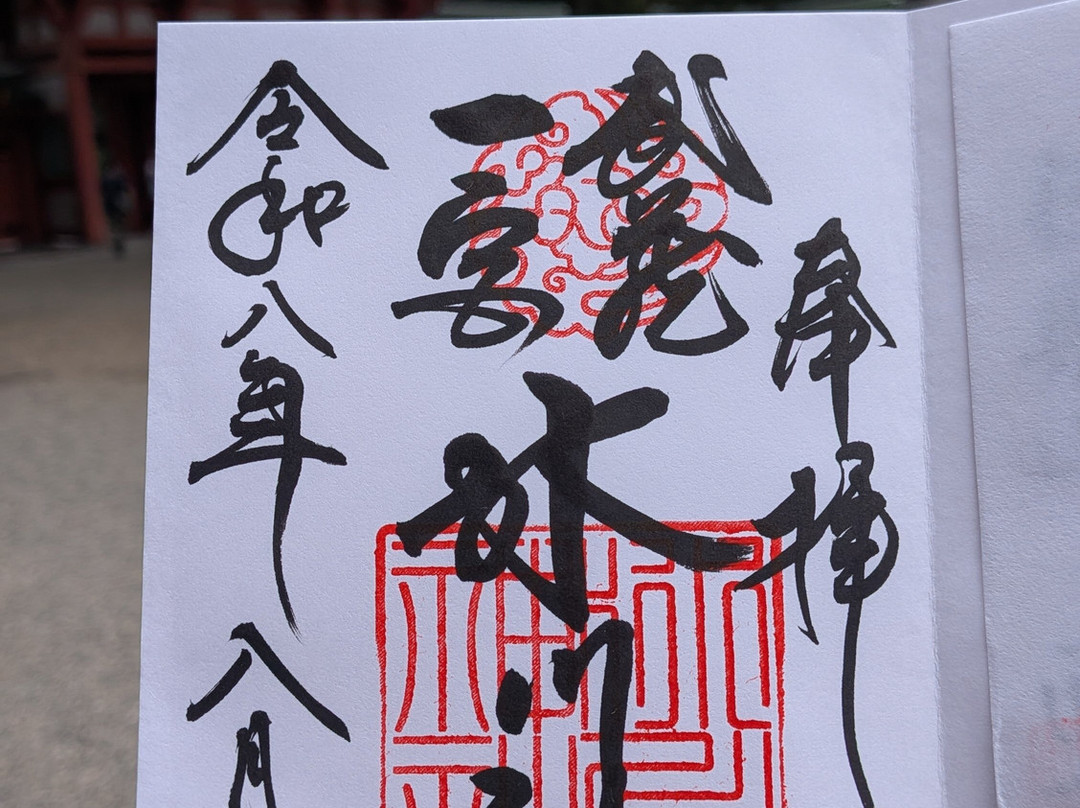 奉拝
武蔵
一宮
氷川
令和八年八月